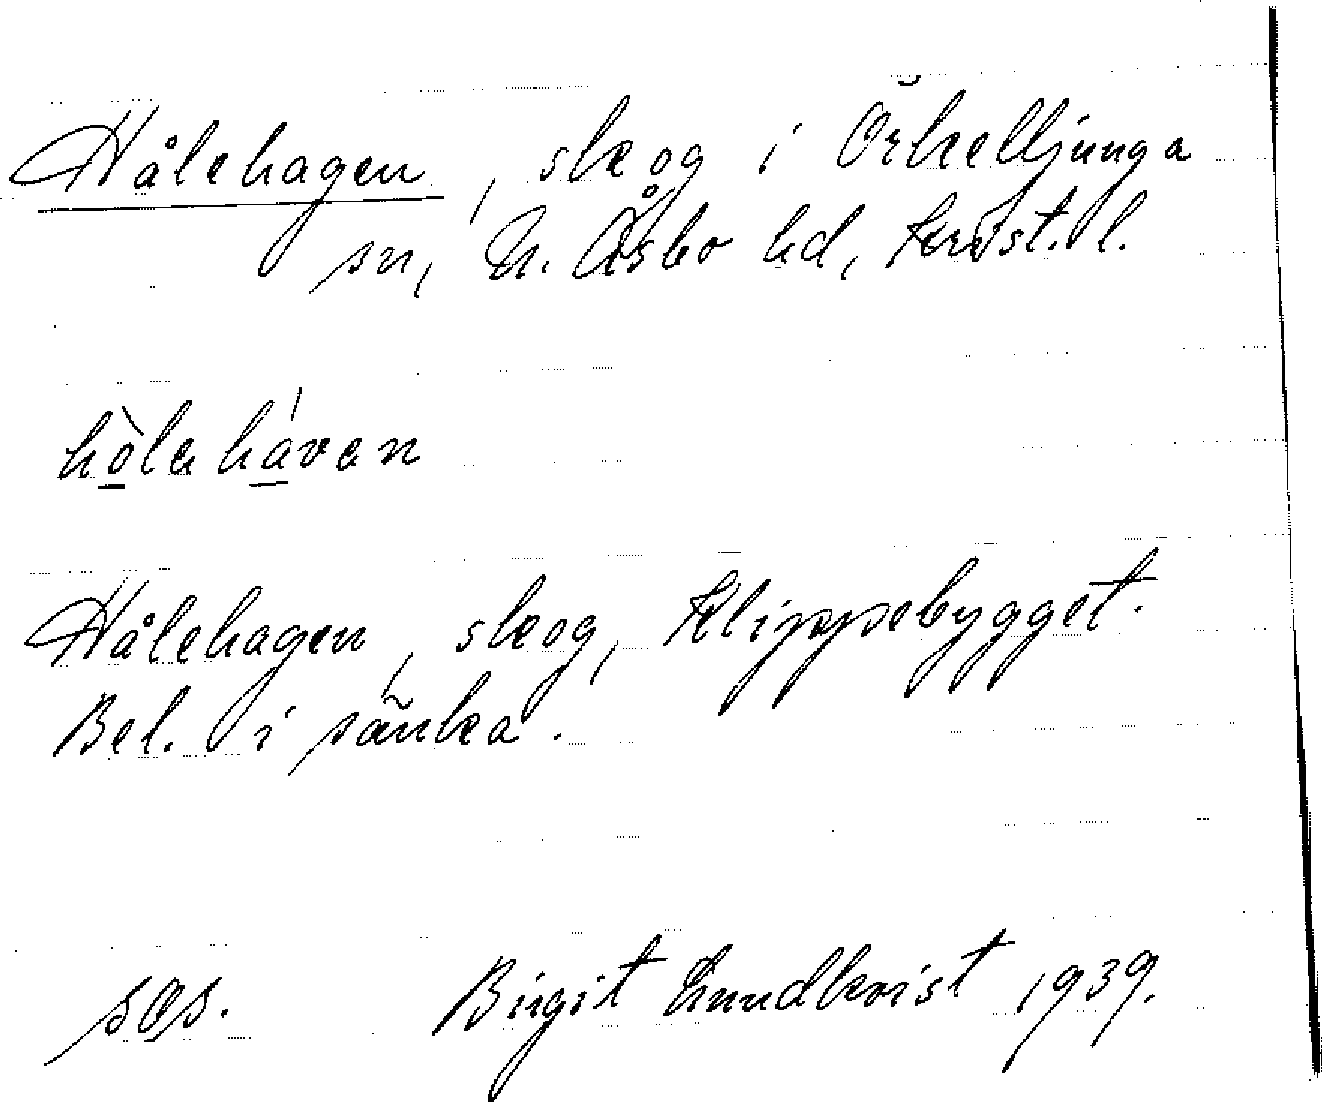 Hålehagen, skog i Örkelljunga
sn, N. Åsbo hd, Krist. l.
hòlahávan
Hålehagen, skog, Klippebygget.
Bel. i sänka.
sas. Birgit Lundkvist 1939.